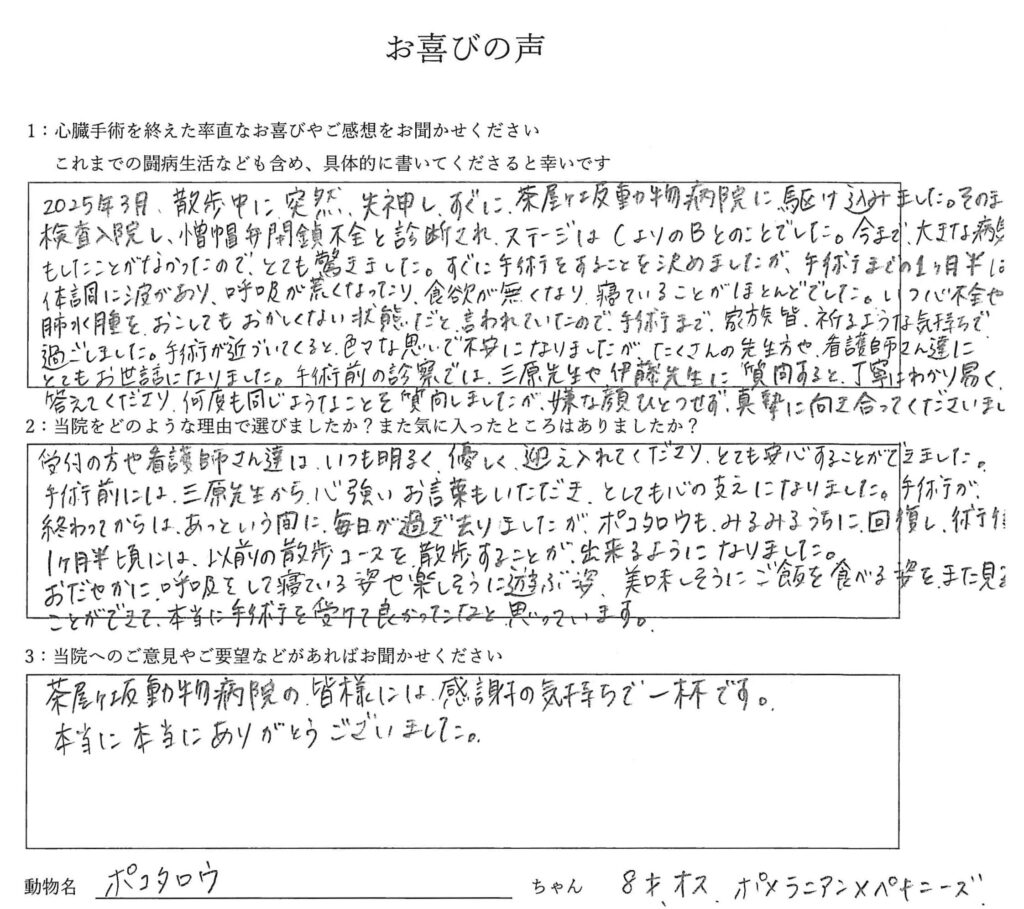 お喜びの声
1：心臓手術を終えた率直なお喜びやご感想をお聞かせください
これまでの闘病生活なども含め、具体的に書いてくださると幸いです
2025年3月、散歩中に突然、失神し、すぐに、茶屋ヶ坂動物病院に駆け込みました。そのま
検査入院し、憎帽弁閉鎖不全と診断され、ステージはCよりのBとのことでした。今まで、大きな病気
もしたことがなかったので、とても驚きました。すぐに手術をすることを決めましたが、手術までの1ヶ月半は
体調に波があり、呼吸が荒くなったり、食欲が無くなり、寝ていることがほとんどでした。いつ心不全や
肺水腫を、おこしてもおかしくない状態だと言われていたので、手術まで、家族皆、祈るような気持ちで
過ごしました。手術が近づいてくると、色々な思いで不安になりましたが、たくさんの先生方や、看護師さん達に
とてもお世話になりました。手術前の診察では、三原先生や伊藤先生に質問すると、丁寧にわかり易く、
答えてくださり、何度も同じようなことを質問しましたが、嫌な顔ひとつせず、真摯に向き合ってくださいまし
2：当院をどのような理由で選びましたか？また気に入ったところはありましたか？
受付の方や看護師さん達は、いつも明るく、優しく、迎え入れてくださり、とても安心することができました。
手術前には、三原先生から、心強いお言葉もいただき、とても心の支えになりました。手術が、
終わってからは、あっという間に、毎日が過ぎ去りましたが、ポコタロウも、みるみるうちに、回復し、術後
1ヶ月半頃には、以前の散歩コースを、散歩することが、出来るようになりました。
おだやかに、呼吸をして寝ている姿や楽しそうに遊ぶ姿、美味しそうにご飯を食べる姿を、また見る
ことができて、本当に手術を受けて良かったなと思っています。
3：当院へのご意見やご要望などがあればお聞かせください
茶屋ヶ坂動物病院の、皆様には、感謝の気持ちで一杯です。
本当に本当にありがとうございました。
動物名 ポコタロウ ちゃん 8才、オス、ポメラニアン×ペキニーズ